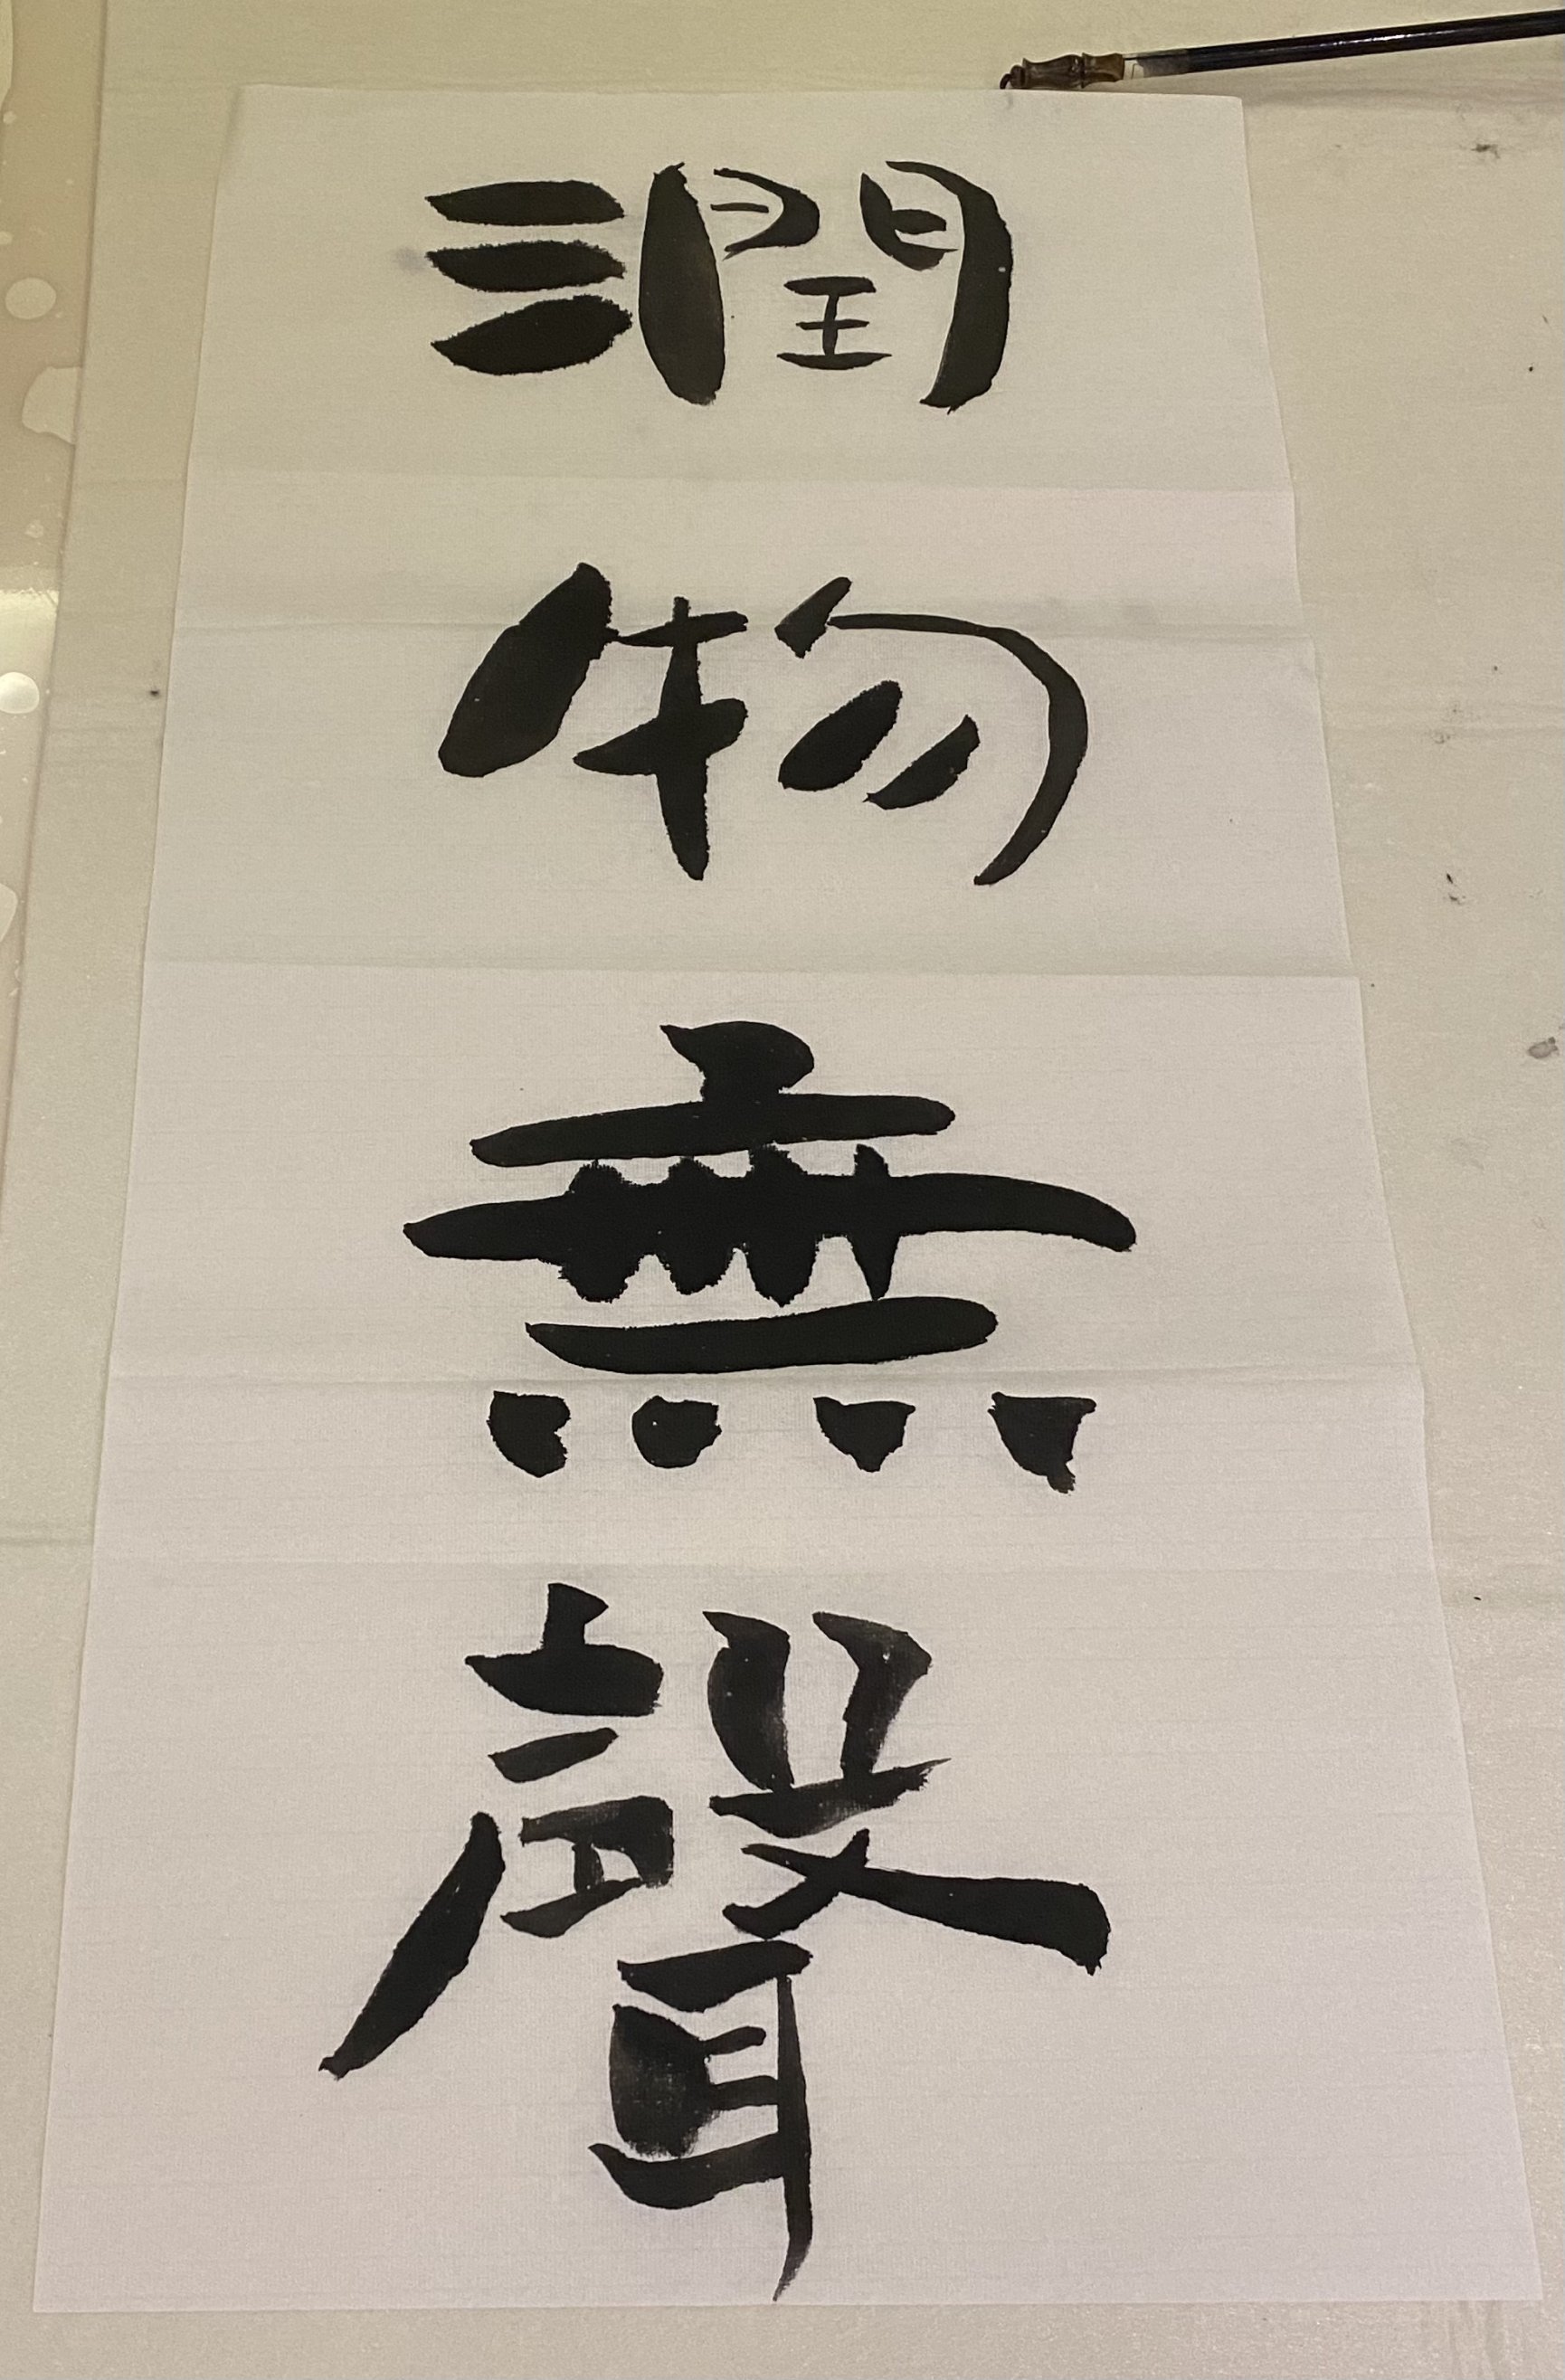 潤物無聲